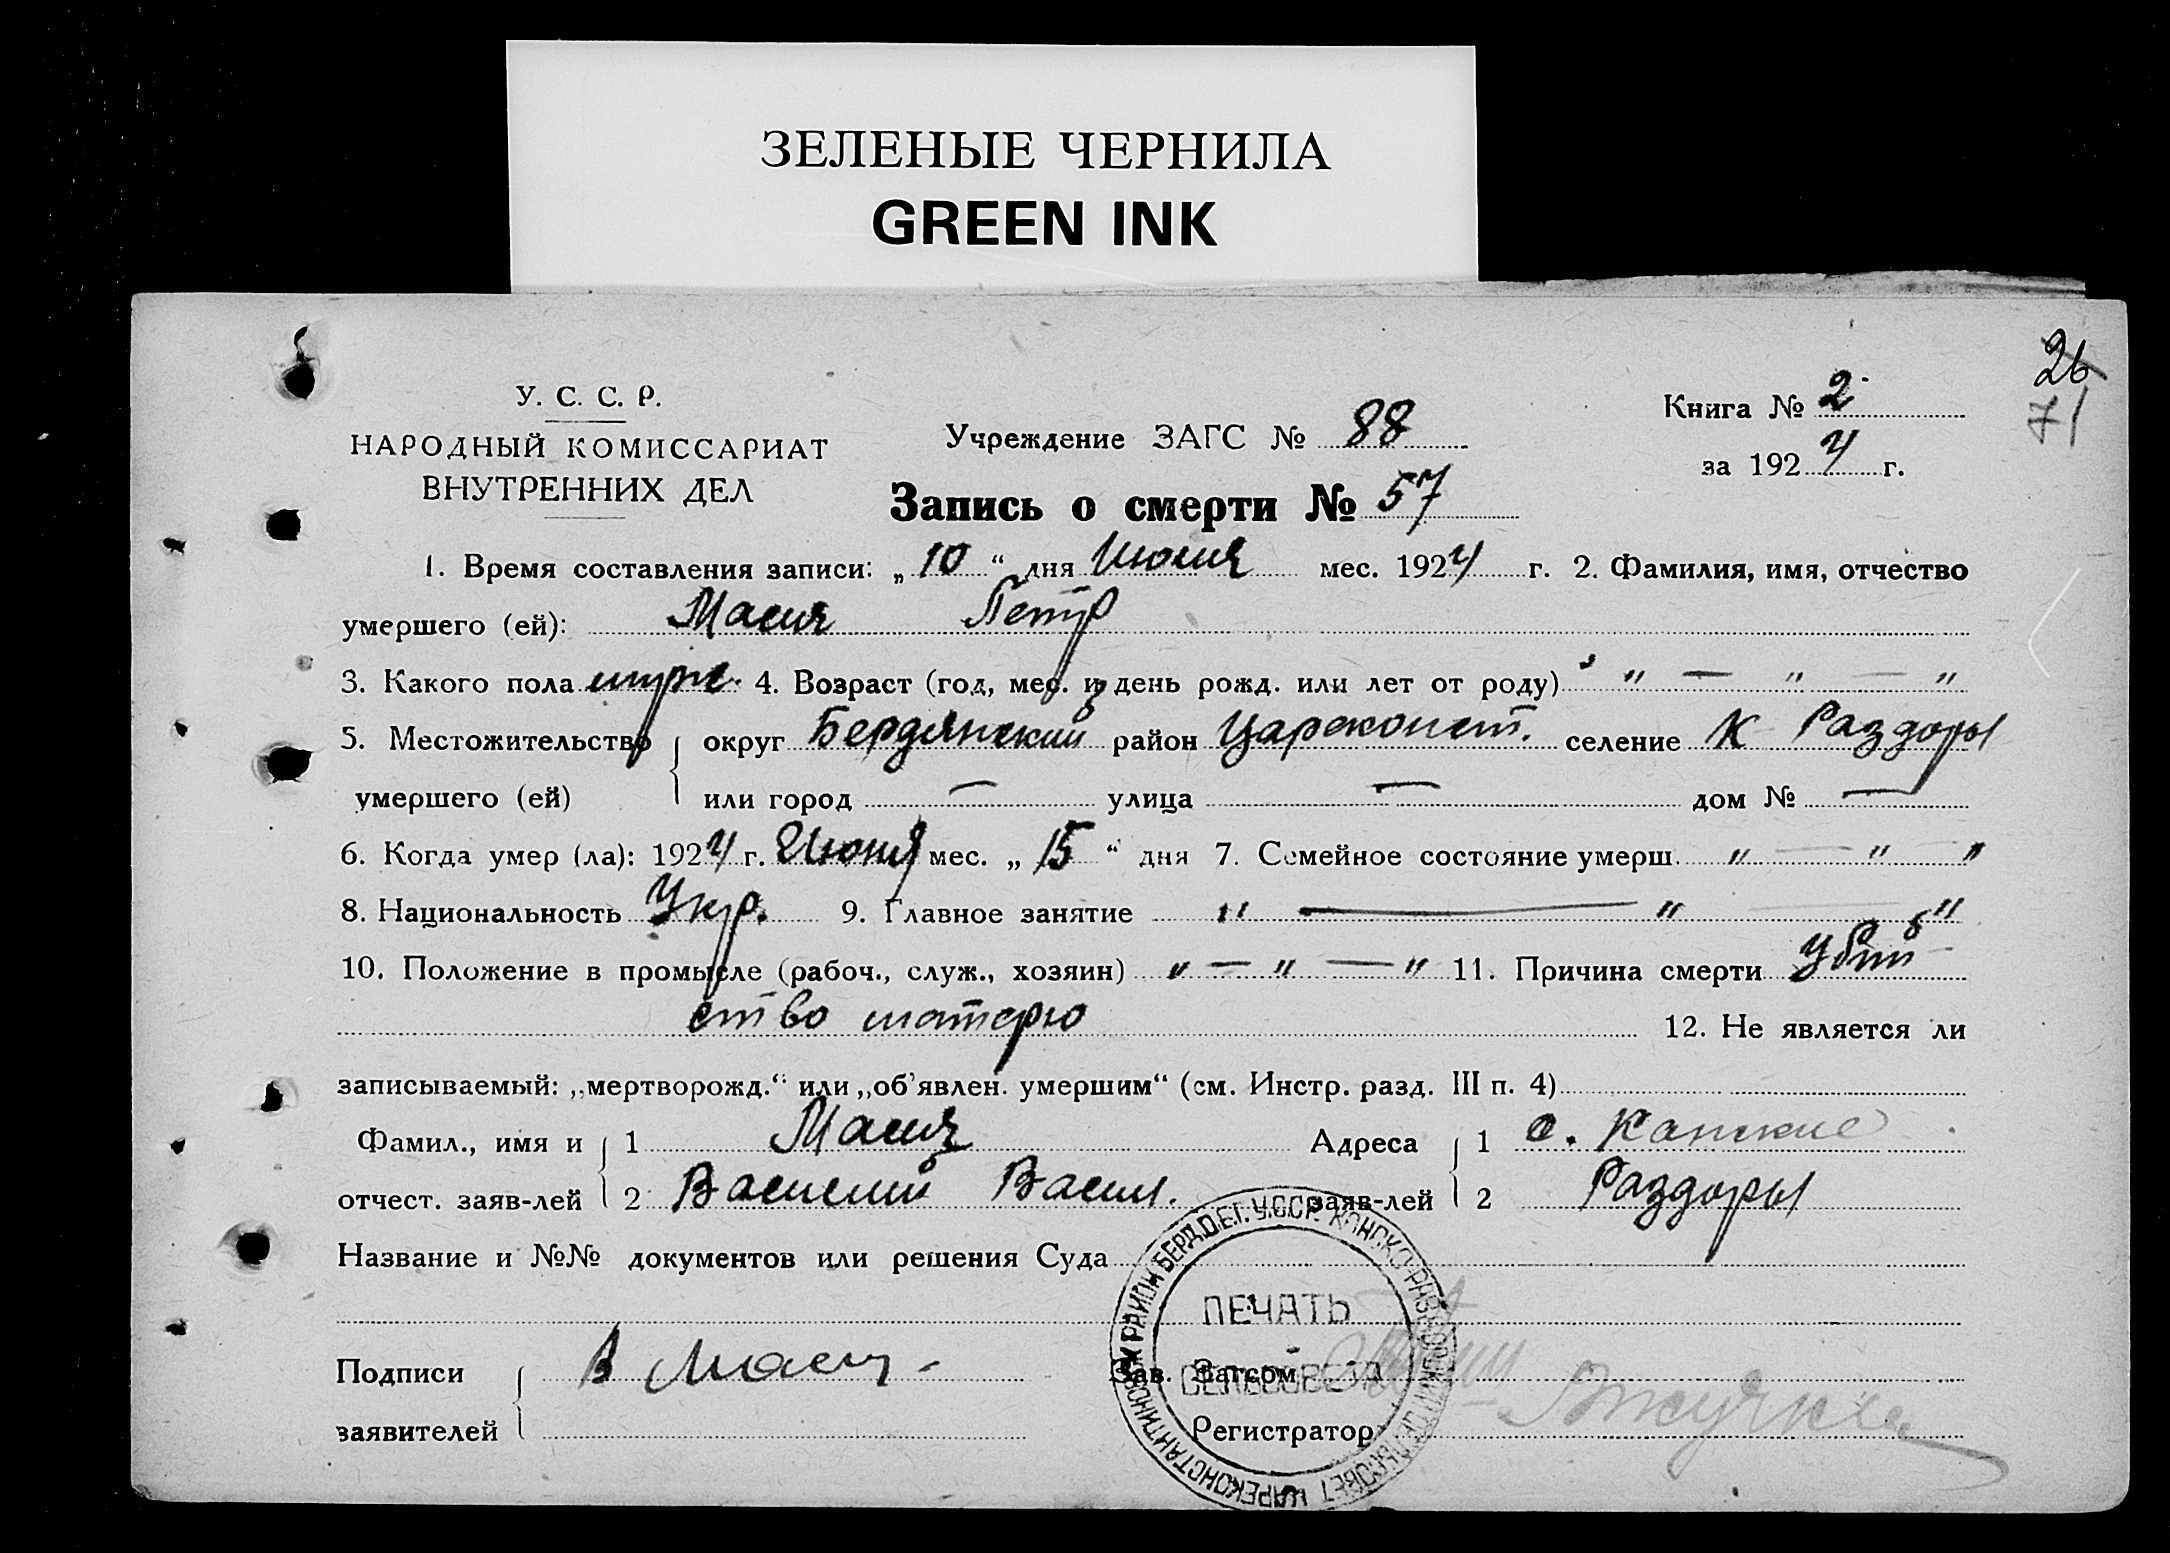 ЗЕЛЕНЫЕ ЧЕРНИЛА
GREEN INK
26
71
У. С. С. Р.
НАРОДНЫЙ КОМИССАРИАТ
ВНУТРЕННИХ ДЕЛ
Учреждение ЗАГС № 88
Книга № 2
за 1924 г.
Запись о смерти № 57
1. Время составления записи: „10“ дня Июля мес. 1924 г. 2. Фамилия, имя, отчество
умершего (ей): Масич Петр
3. Какого пола мужс. 4. Возраст (год, мес. и день рожд. или лет от роду) " — " — "
5. Местожительство округ Бердянский район Цареконст. селение К Раздоры
умершего (ей) или город — улица — дом № —
6. Когда умер (ла): 1924 г. Июня мес. „15“ дня 7. Семейное состояние умерш. " — " "
8. Национальность Укр. 9. Главное занятие " — " "
10. Положение в промысле (рабоч., служ., хозяин) " — " — " 11. Причина смерти Убий
ство матерю 12. Не является ли
записываемый: „мертворожд.“ или „об'явлен. умершим“ (см. Инстр. разд. III п. 4)
Фамил., имя и 1 Масич Адреса 1 с. Канские
отчест. заяв-лей 2 Василий Васил. заяв-лей 2 Раздоры
Название и №№ документов или решения Суда
Подписи В Масич Зав. Загсом
заявителей Регистратор
ПЕЧАТЬ
СЕЛЬСОВЕТА